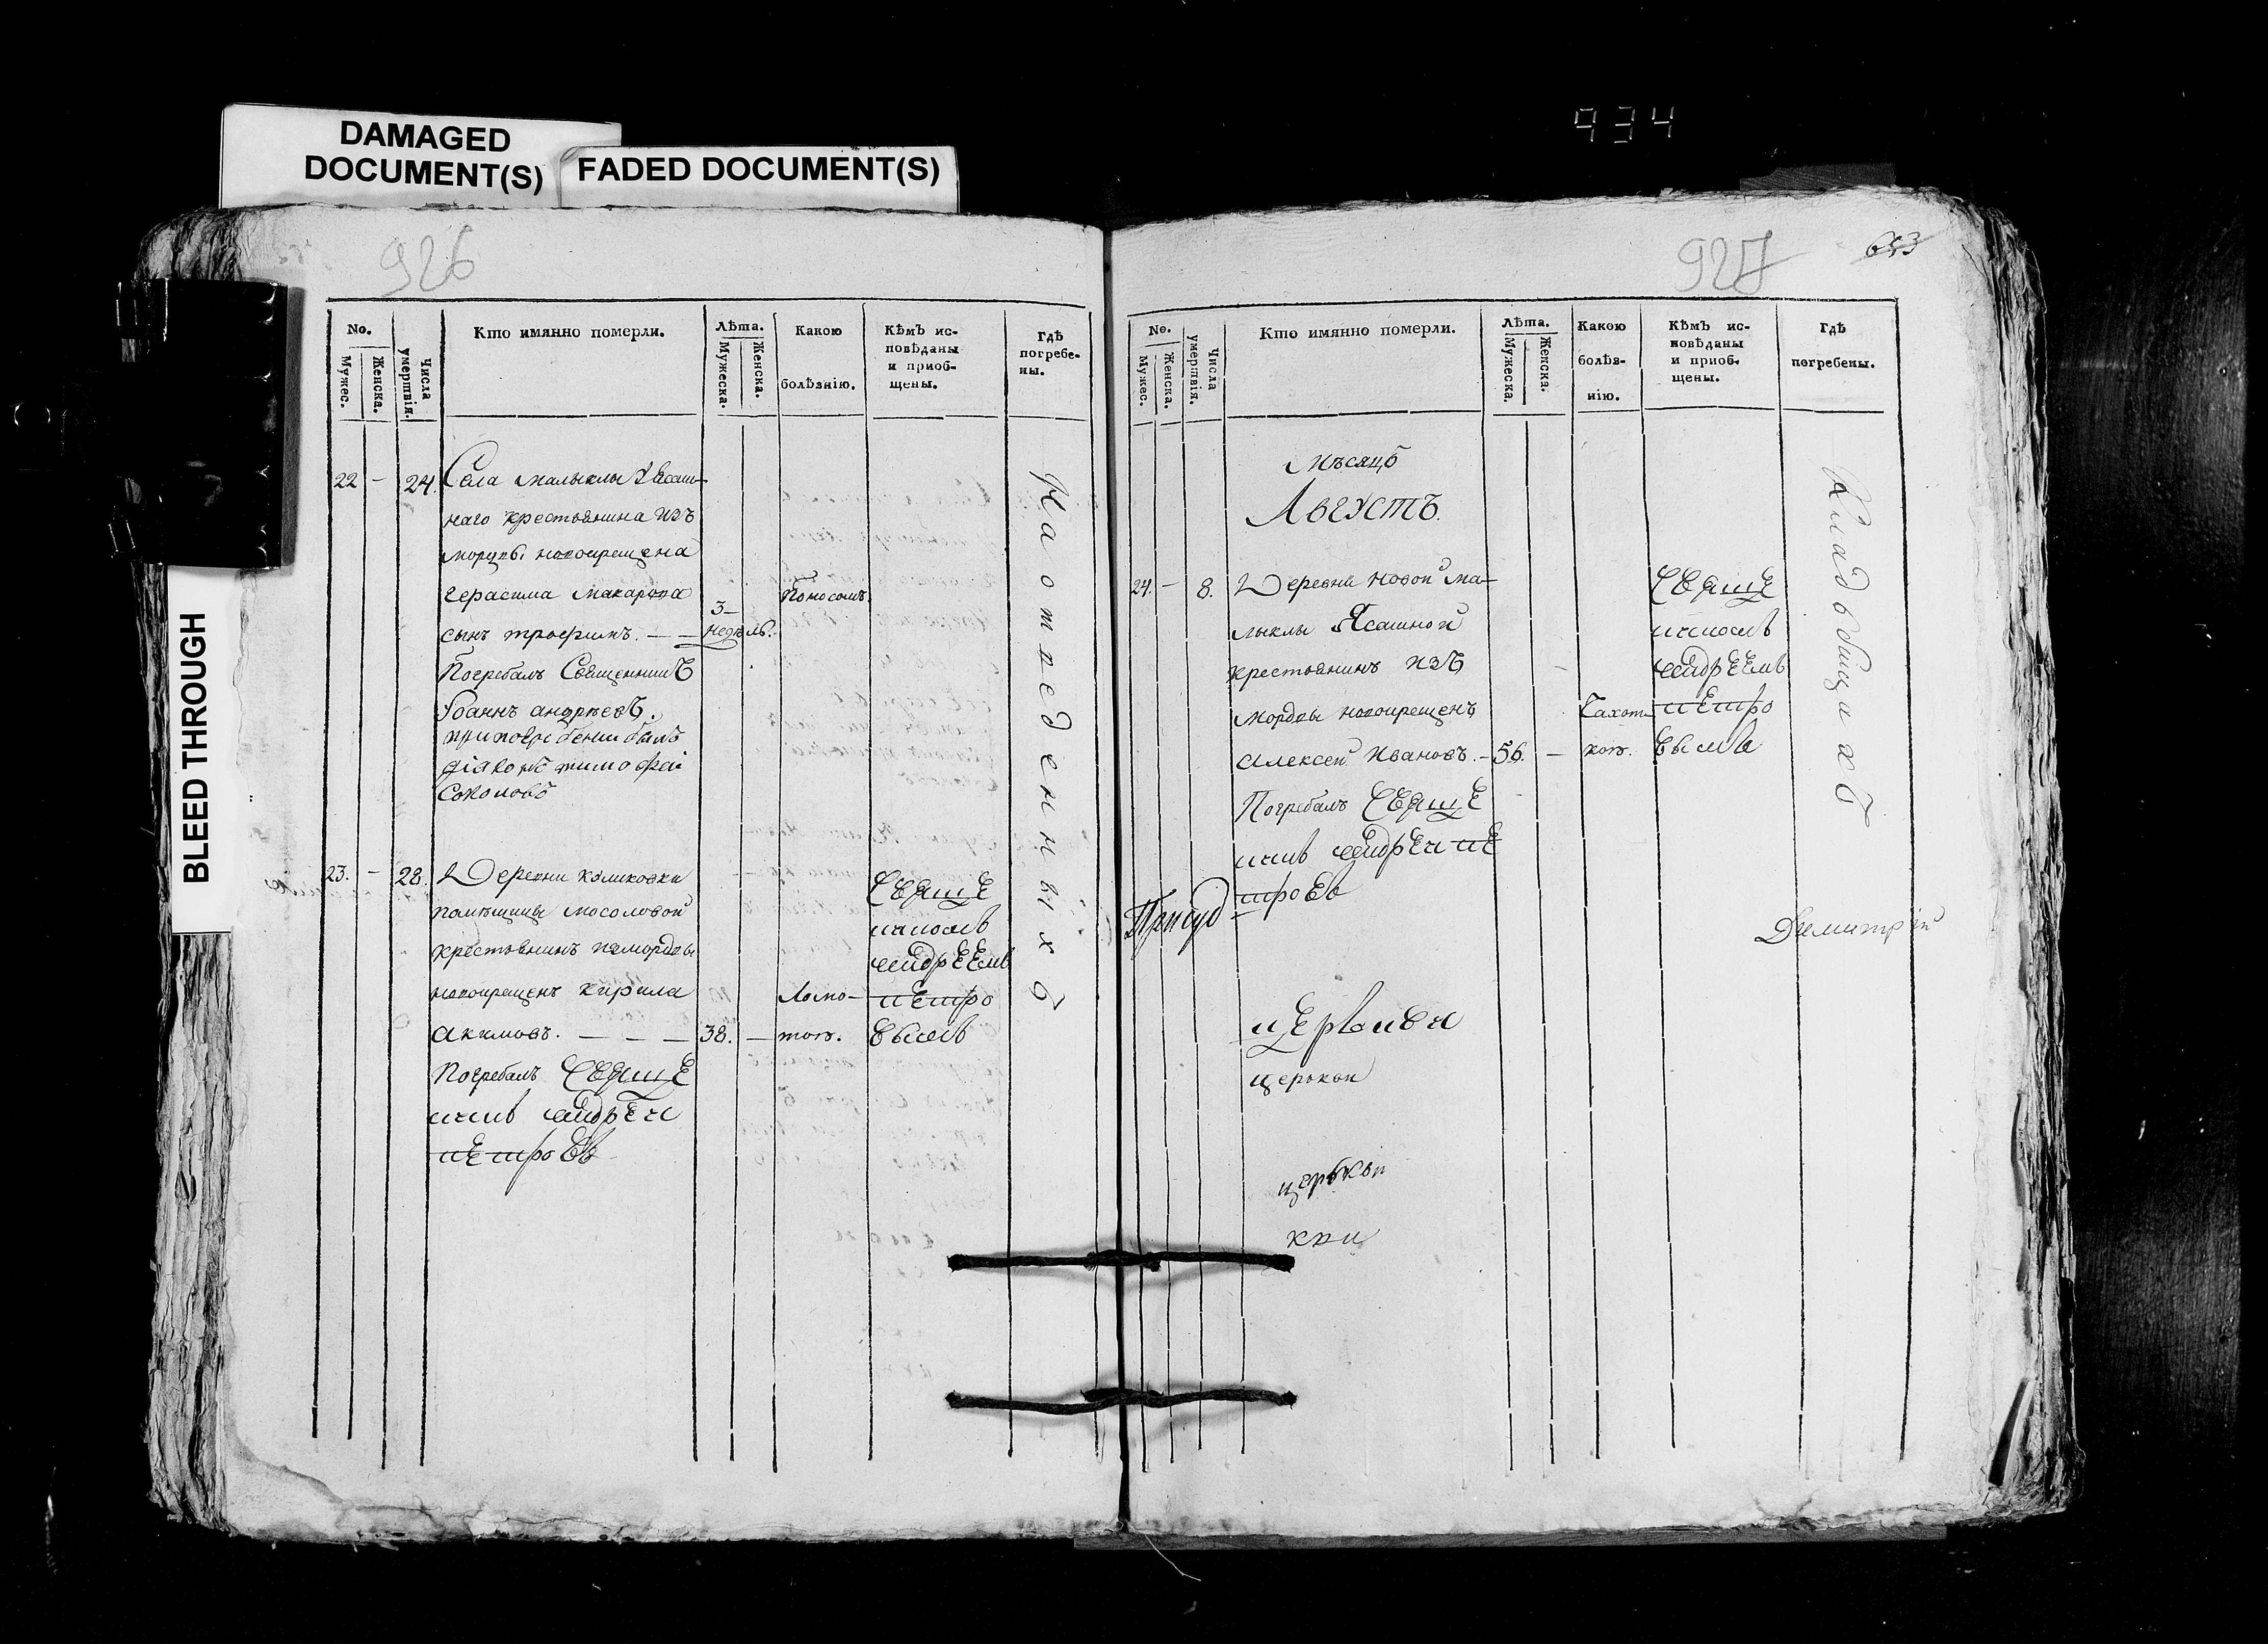 934
DAMAGED
DOCUMENT(S)
FADED DOCUMENT(S)
BLEED THROUGH
926
No.
Мужес.
Женска.
Числа умертвія.
Кто имянно померли.
Лѣта.
Мужеска.
Женска.
Какою
болѣзнію.
Кѣмъ ис-
повѣданы
и приоб-
щены.
Гдѣ
погребе-
ны.
22 — 24. Села малыклы Ясаш-
наго крестьянина изъ
мордвы новокрещена
герасима макарова Поносомъ.
сынъ трофимъ. — — 3— недѣль.
Погребалъ Священникъ
Іоаннъ андреевъ.
при погребении былъ
діаконъ тимофеи
Соколовъ
23. — 28. Деревни
помѣщицы мосоловой
крестьянинъ из мордвы
новокрещенъ кирила
акимовъ. — — — 38. — Ломо-
тою.
Погребалъ Свяще
нникъ андреи
петровъ
Свяще
нникомъ
андреемъ
петро
вымъ
На отведенныхъ
927
643
No.
Мужес.
Женска.
Числа умертвія.
Кто имянно померли.
Лѣта.
Мужеска.
Женска.
Какою
болѣз-
нію.
Кѣмъ ис-
повѣданы
и приоб-
щены.
Гдѣ
погребены.
Мѣсяцъ
Августъ.
24. — 8. Деревни новой ма-
лыклы Ясашной
крестьянинъ изъ
мордвы новокрещенъ
алексей Ивановъ. — 56. — Чахот-
кою.
Погребалъ Свяще
нникъ андреи пе
тровъ
Свяще
нникомъ
андреемъ
петро
вымъ
Кладбищахъ
Димитрій
церкви